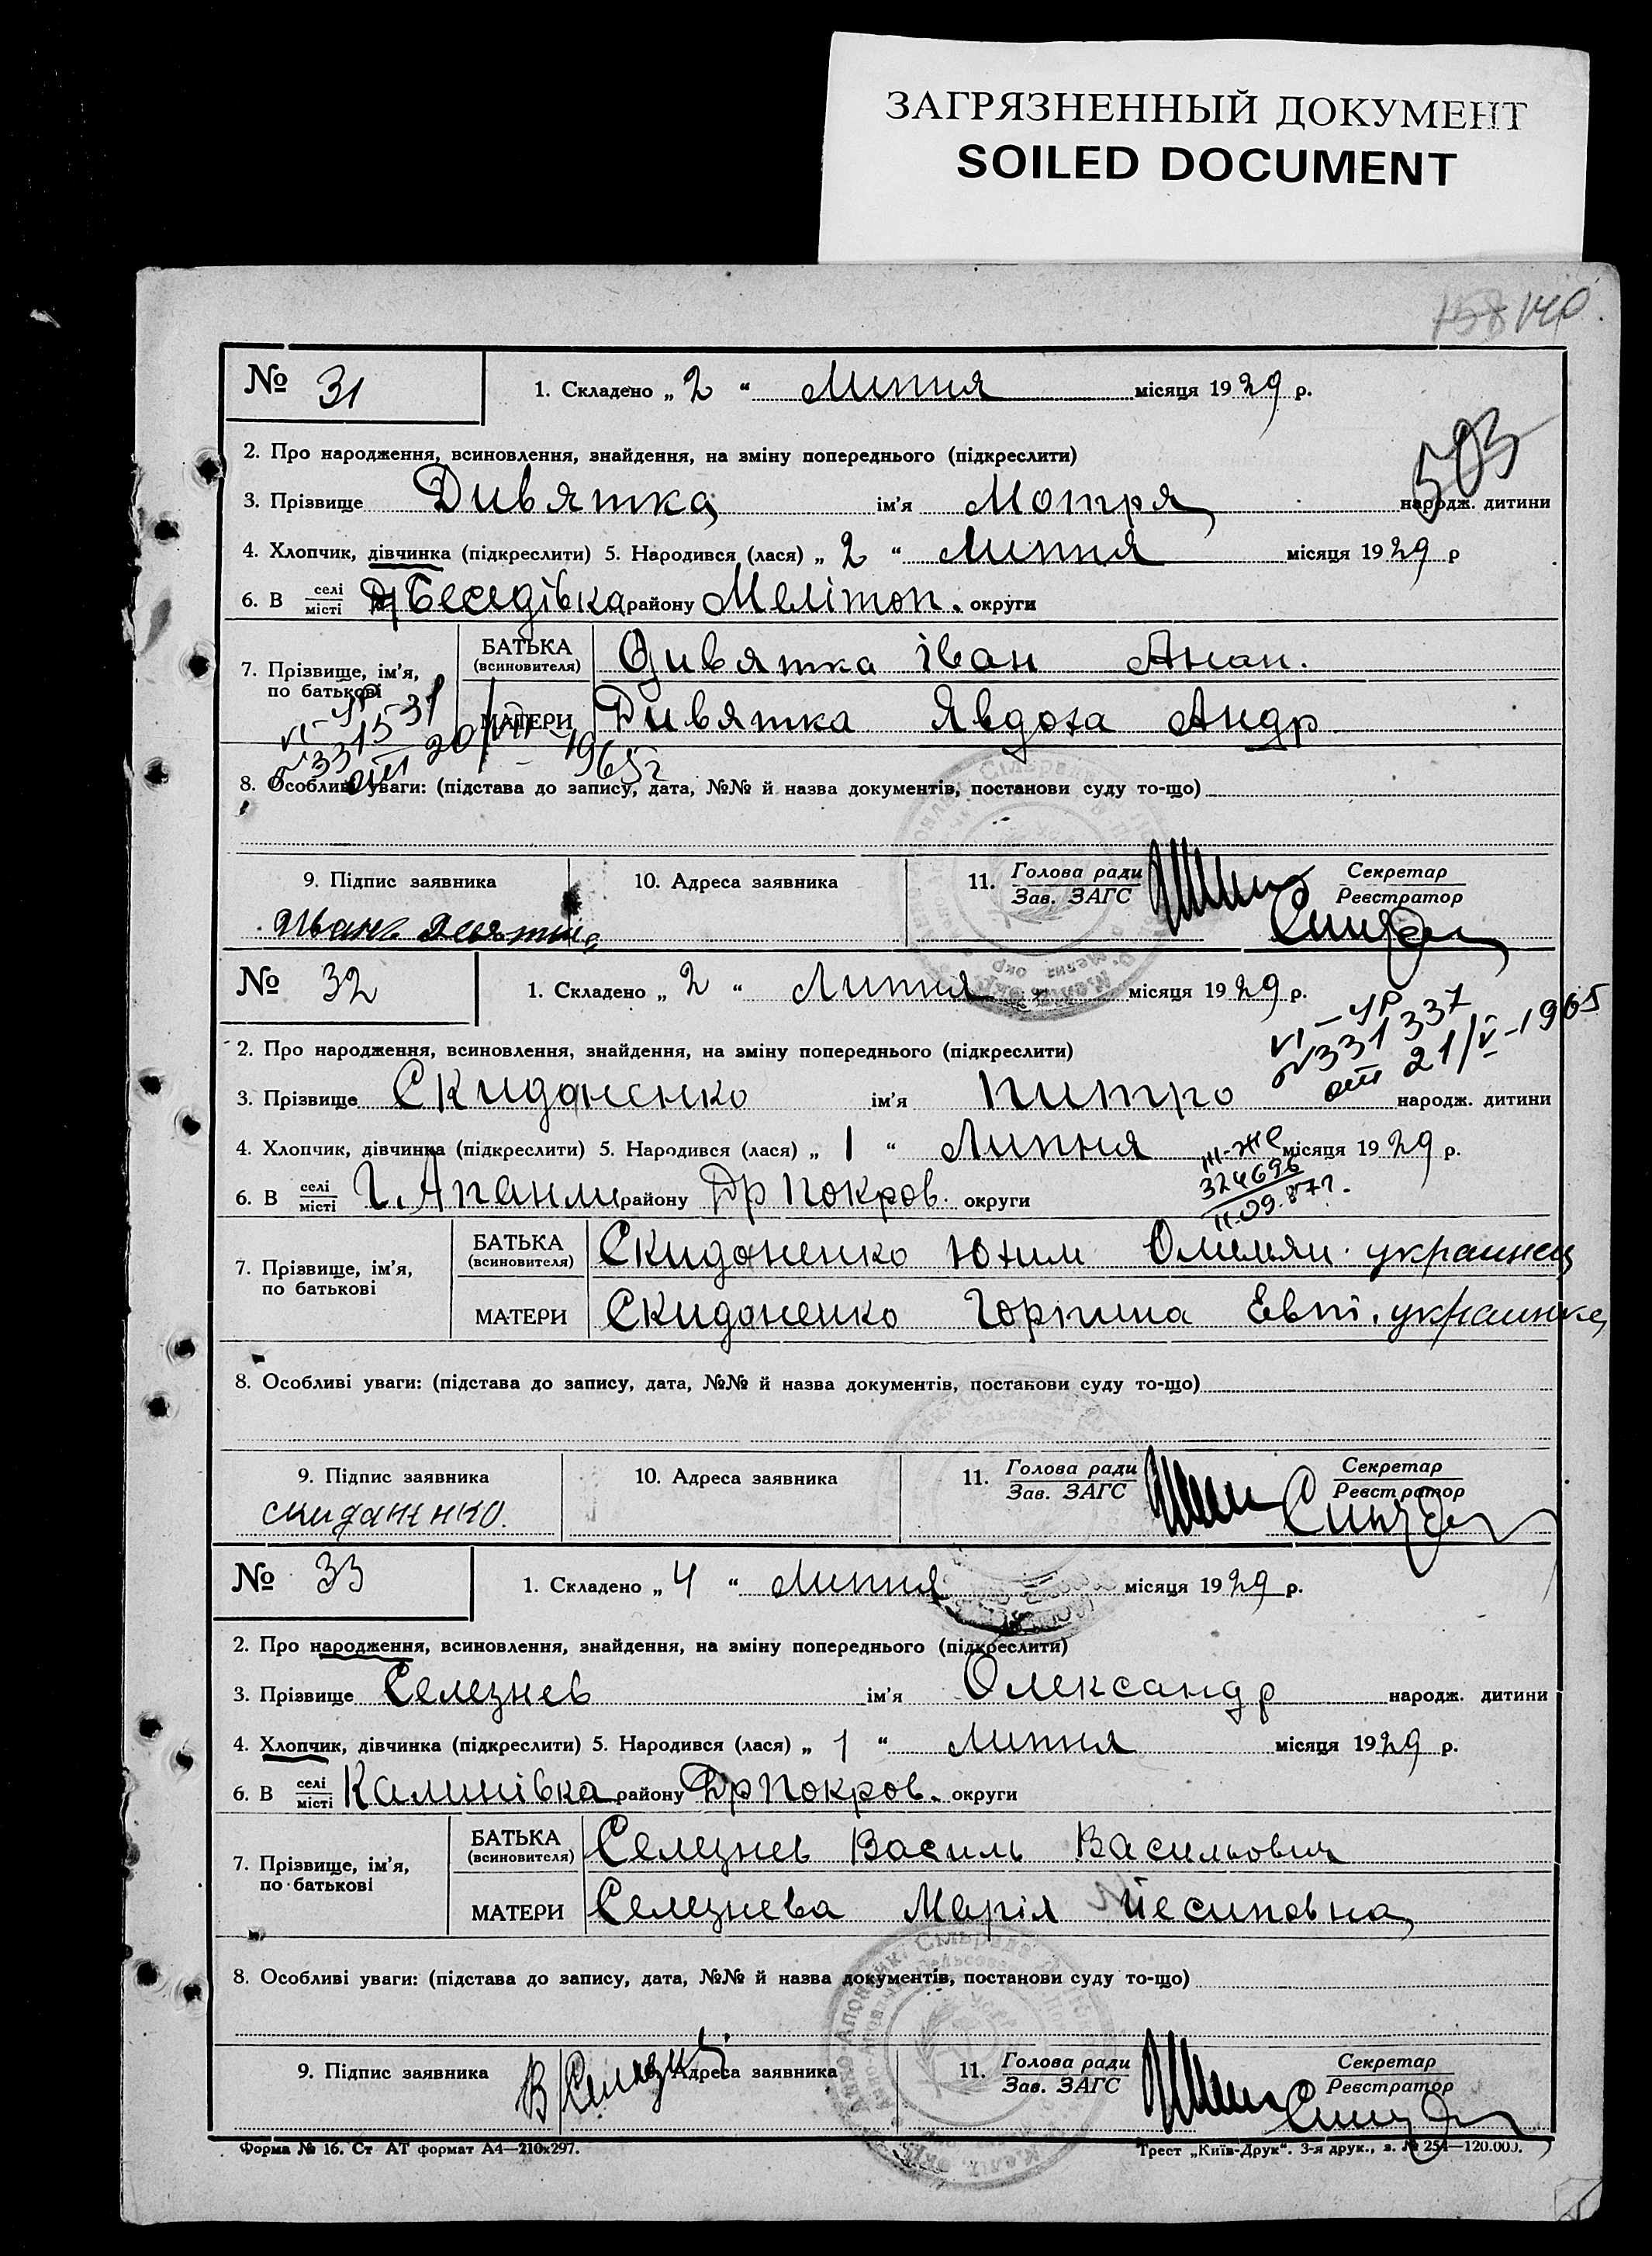 ЗАГРЯЗНЕННЫЙ ДОКУМЕНТ
SOILED DOCUMENT
158 140
№ 31 1. Складено „ 2 “ Липня місяця 1929 р.
503
2. Про народження, всиновлення, знайдення, на зміну попереднього (підкреслити)
3. Прізвище Дивятка ім'я Мотря народж. дитини
4. Хлопчик, дівчинка (підкреслити) 5. Народився (лася) „ 2 “ Липня місяця 1929 р
6. В селі/місті Беседівка району Мелітоп. округи
7. Прізвище, ім'я, по батькові
БАТЬКА (всиновителя) Дивятка Іван Анан.
МАТЕРИ Дивятка Явдоха Андр
VI-УР
№331531
от 20/VII-1965г
8. Особливі уваги: (підстава до запису, дата, №№ й назва документів, постанови суду то-що)
9. Підпис заявника 10. Адреса заявника 11. Голова ради/Зав. ЗАГС Секретар/Реєстратор
Иванъ
№ 32 1. Складено „ 2 “ Липня місяця 1929 р.
VI-УР
№331337
от 21/V-1965
2. Про народження, всиновлення, знайдення, на зміну попереднього (підкреслити)
3. Прізвище Скиданенко ім'я Питро народж. дитини
4. Хлопчик, дівчинка (підкреслити) 5. Народився (лася) „ 1 “ Липня місяця 1929 р.
III-ЖС
324696
11.09.87г.
6. В селі/місті Г. Апанли району Др Покров. округи
7. Прізвище, ім'я, по батькові
БАТЬКА (всиновителя) Скиданенко Юхим Омельян. украинец
МАТЕРИ Скиданенко Горпина Евт. украинка
8. Особливі уваги: (підстава до запису, дата, №№ й назва документів, постанови суду то-що)
9. Підпис заявника 10. Адреса заявника 11. Голова ради/Зав. ЗАГС Секретар/Реєстратор
Скиданенко.
№ 33 1. Складено „ 4 “ Липня місяця 1929 р.
2. Про народження, всиновлення, знайдення, на зміну попереднього (підкреслити)
3. Прізвище Селезнев ім'я Олександр народж. дитини
4. Хлопчик, дівчинка (підкреслити) 5. Народився (лася) „ 1 “ Липня місяця 1929 р.
6. В селі/місті Калинівка району Др Покров. округи
7. Прізвище, ім'я, по батькові
БАТЬКА (всиновителя) Селезнев Василь Васильович
МАТЕРИ Селезнева Марія Йесиповна
8. Особливі уваги: (підстава до запису, дата, №№ й назва документів, постанови суду то-що)
9. Підпис заявника 10. Адреса заявника 11. Голова ради/Зав. ЗАГС Секретар/Реєстратор
Форма № 16. Ст АТ формат А4—210х297. Трест „Київ-Друк“. 3-я друк., з. № 254—120.000.